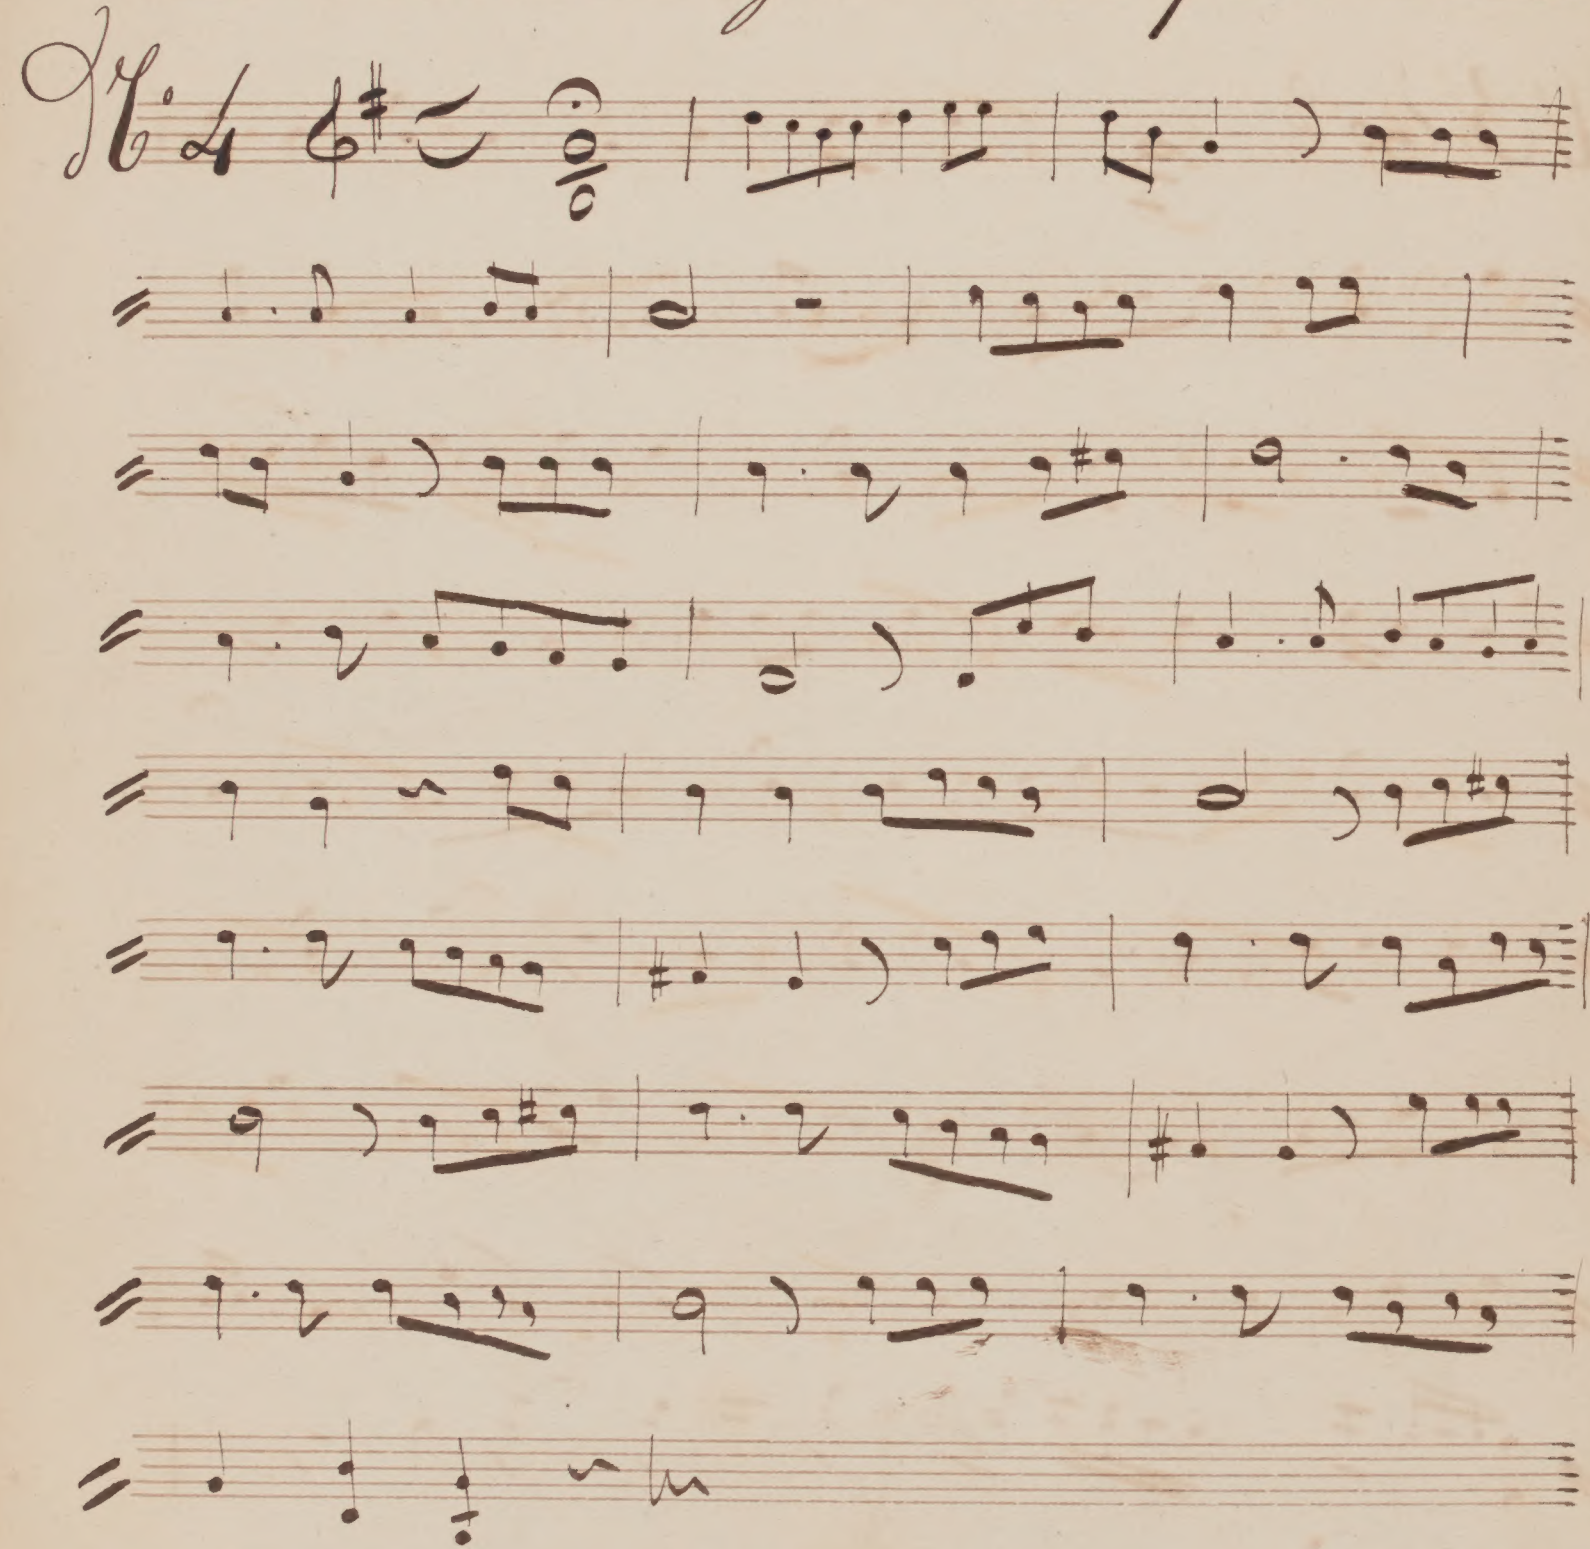 N.º 4